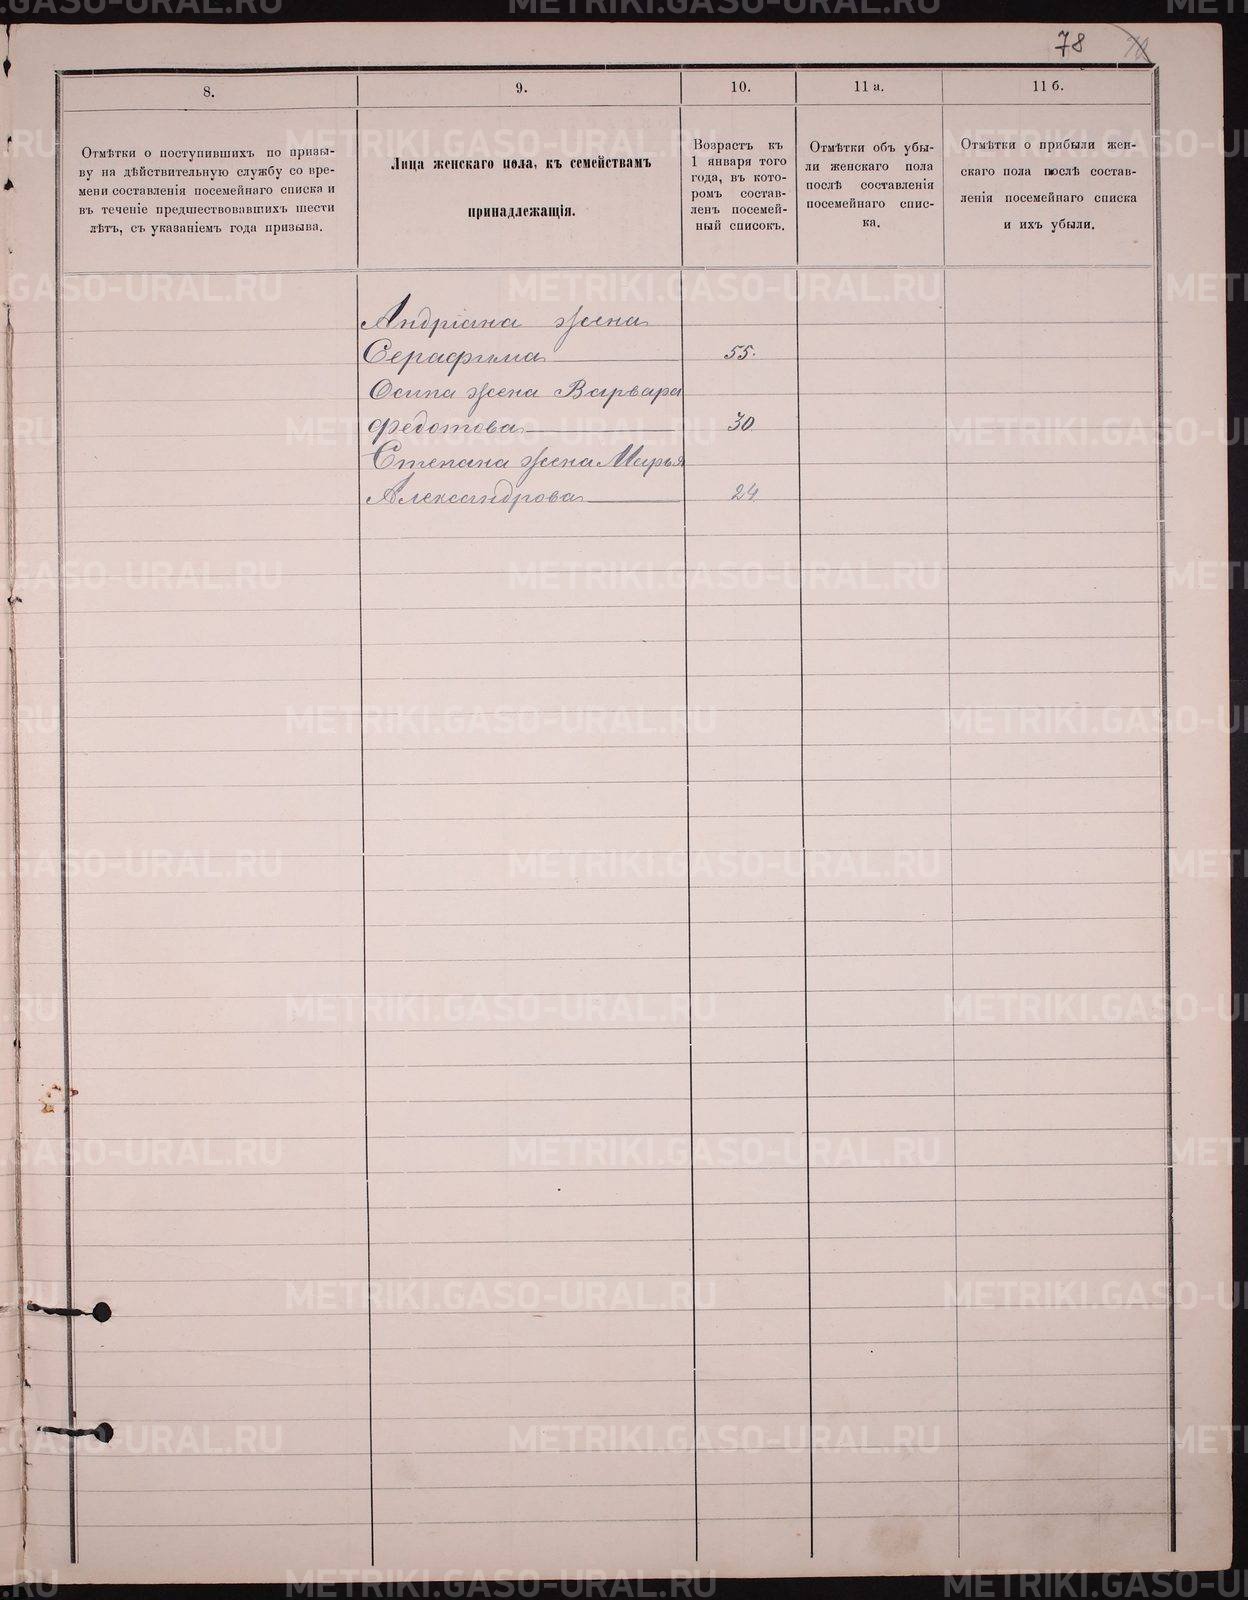 78
8.
9.
10.
11 а.
11 б.
Отмѣтки о поступившихъ по призы-
ву на дѣйствительную службу со вре-
мени составленія посемейнаго списка и
въ теченіе предшествовавшихъ шести
лѣтъ, съ указаніемъ года призыва.
Лица женскаго пола, къ семействамъ
принадлежащія.
Возрастъ къ
1 января того
года, въ кото-
ромъ состав-
ленъ посемей-
ный списокъ.
Отмѣтки объ убы-
ли женскаго пола
послѣ составленія
посемейнаго спис-
ка.
Отмѣтки о прибыли жен-
скаго пола послѣ состав-
ленія посемейнаго списка
и ихъ убыли.
Андріана жена
Серафима 55.
Осипа жена Варвара
Федотова 30
Степана жена Марья
Александрова 24
METRIKI.GASO-URAL.RU